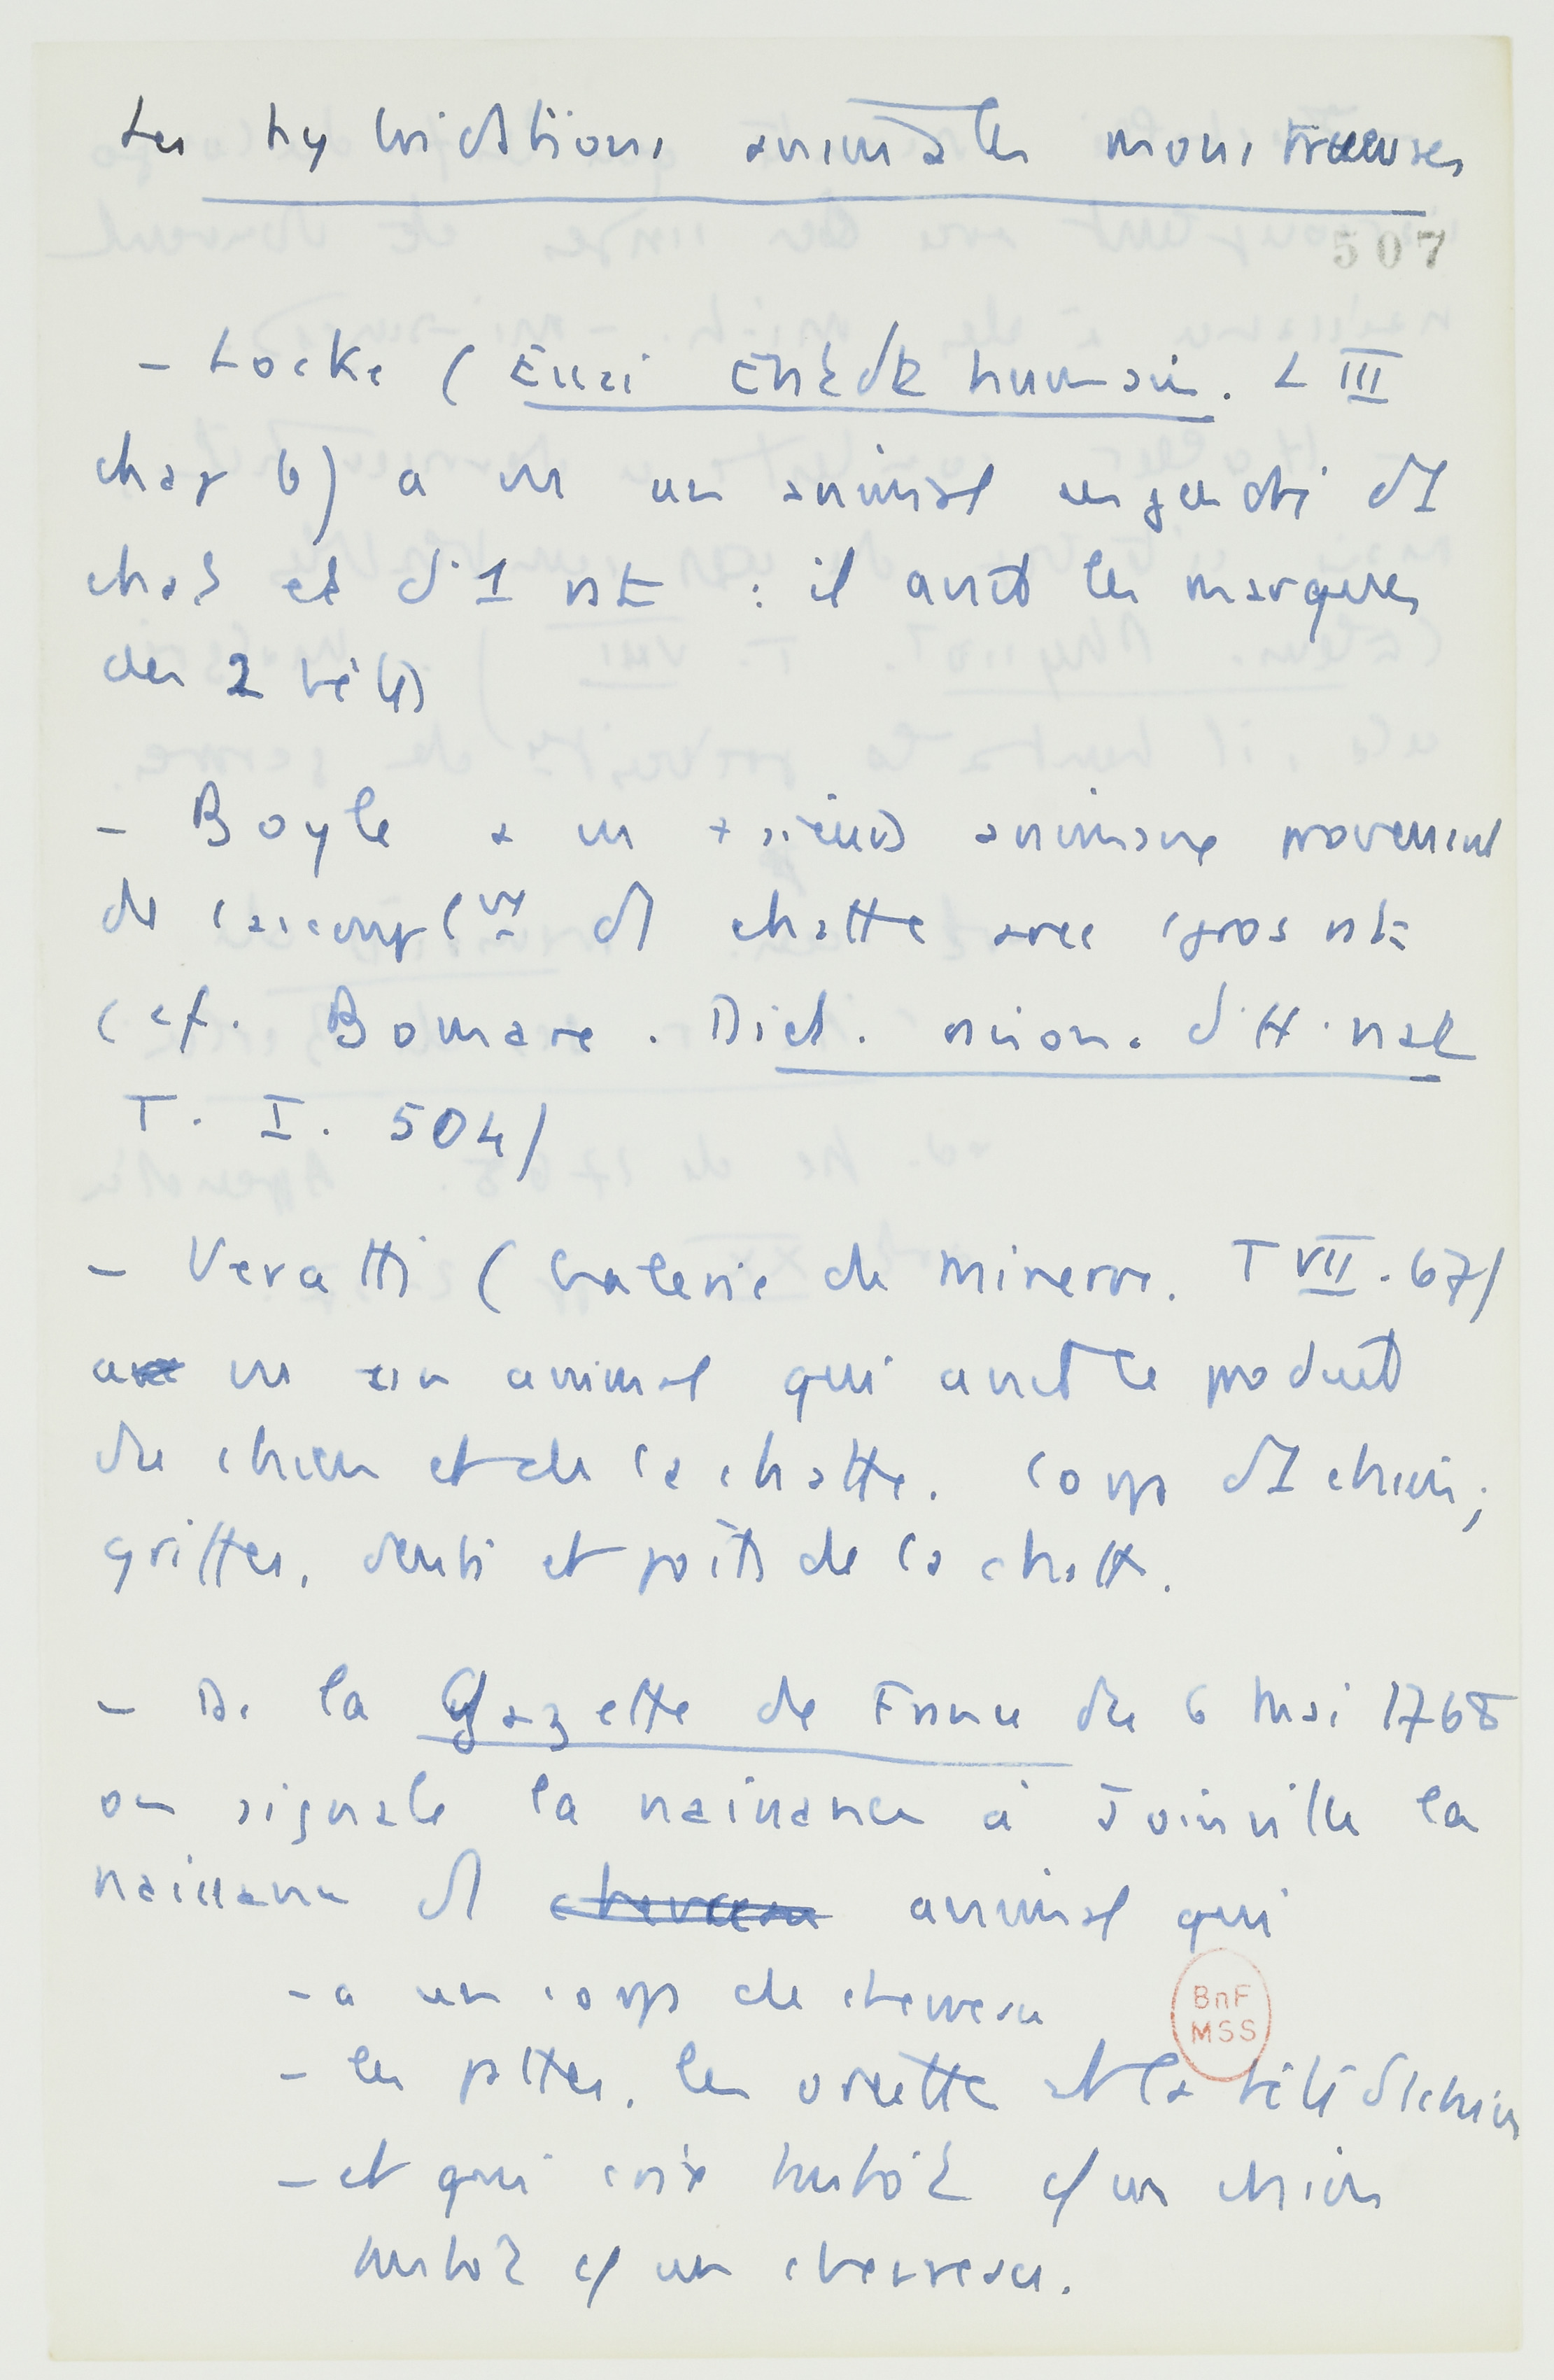 Les hybridations animales monstrueuses
507
- Locke (Essai Entdt humain. L III
chap 6) a vu un animal engendré d'1
chat et d'1 rat : il avait les marques
des 2 bêtes
- Boyle a vu plusieurs animaux provenant
de l'accouplt d'1 chatte avec gros rat
(cf. Bomare. Dict. raison. d'H. nat
T. I. 504)
- Veratti (Galerie de Minerve. T VII. 67)
a vu un animal qui avait le produit
du chien et de la chatte. Corps d'1 chien ;
griffes, dents et poils de la chatte.
- Ds la Gazette de France du 6 Mai 1768
on signale la naissance à Joinville la
naissance d'1 chevreau animal qui
- a un corps de chevreau
- les pattes, les oreilles et la tête d'1 chien
- et qui crie tantôt c/ un chien
tantôt c/ un chevreau.
BnF
MSS